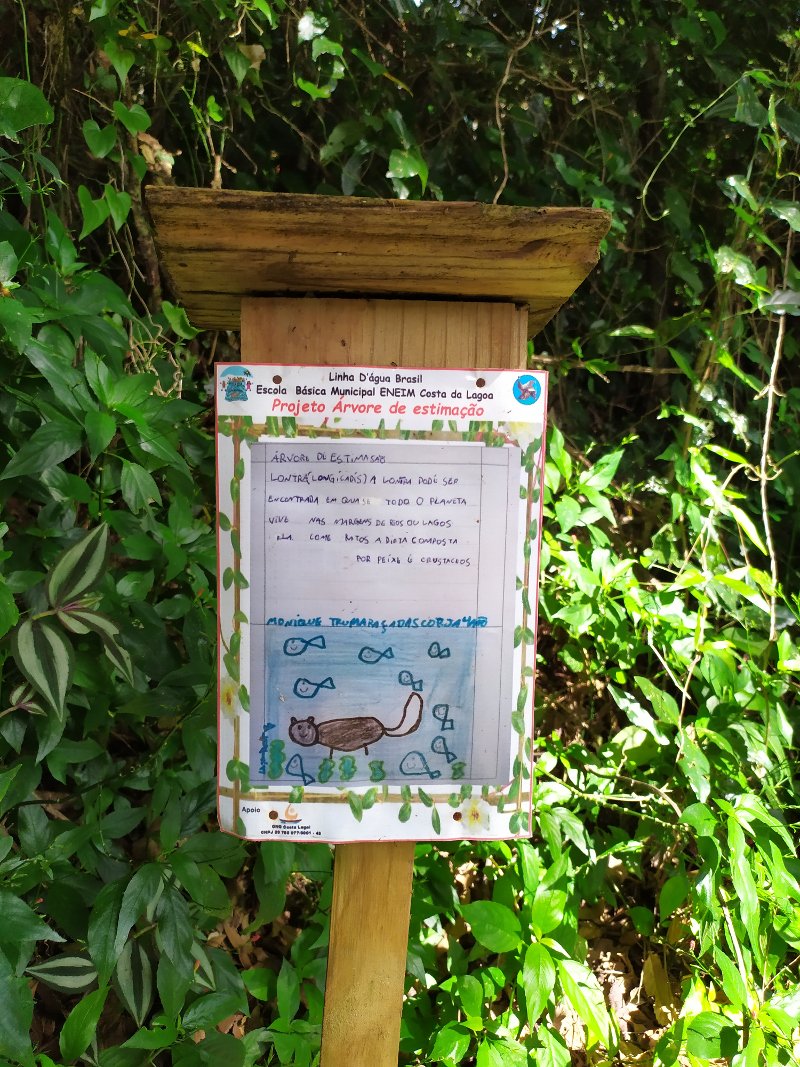 Linha D'água Brasil
Escola Básica Municipal ENEIM Costa da Lagoa
Projeto Árvore de estimação
ÁRVORE DE ESTIMASÃO
LONTRA(LONGICADIS) A LONTRA PODE SER
ENCONTRADA EM QUASE TODO O PLANETA
VIVE NAS MARGENS DE RIOS OU LAGOS
ELA COME RATOS A DIETA COMPOSTA
POR PEIXE E CRUSTACEOS
MONIQUE
Apoio
ONG Costa Legal